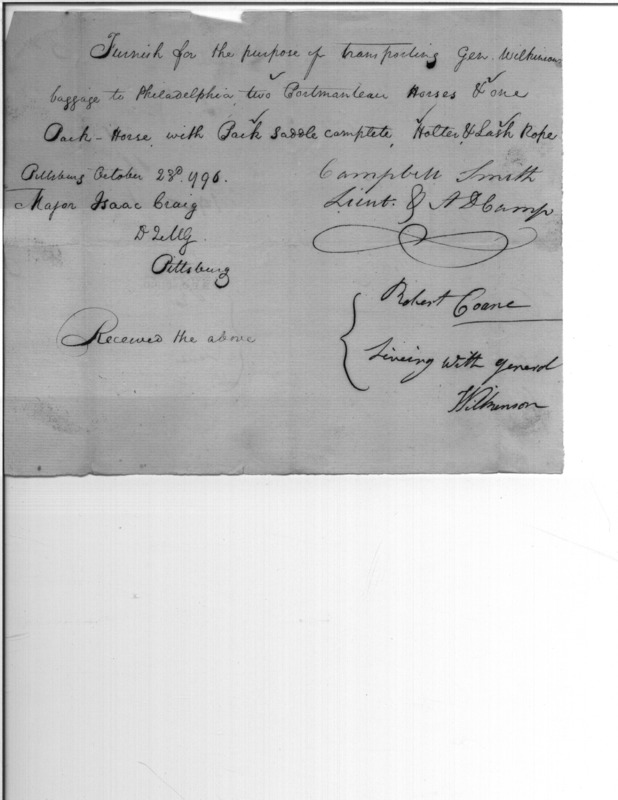 Furnish for the purpose of transporting Gen. Wilkinsons
baggage to Philadelphia two Portmanteau Horses & one
Pack-Horse with Pack Saddle complete, Holter & Lash Rope
Pittsburg October 23d. 1796.
Campbell Smith
Lieut. & A D Camp
Major Isaac Craig
D Q M G
Pittsburg
Received the above
Robert Coane
Liveing with general
Wilkinson